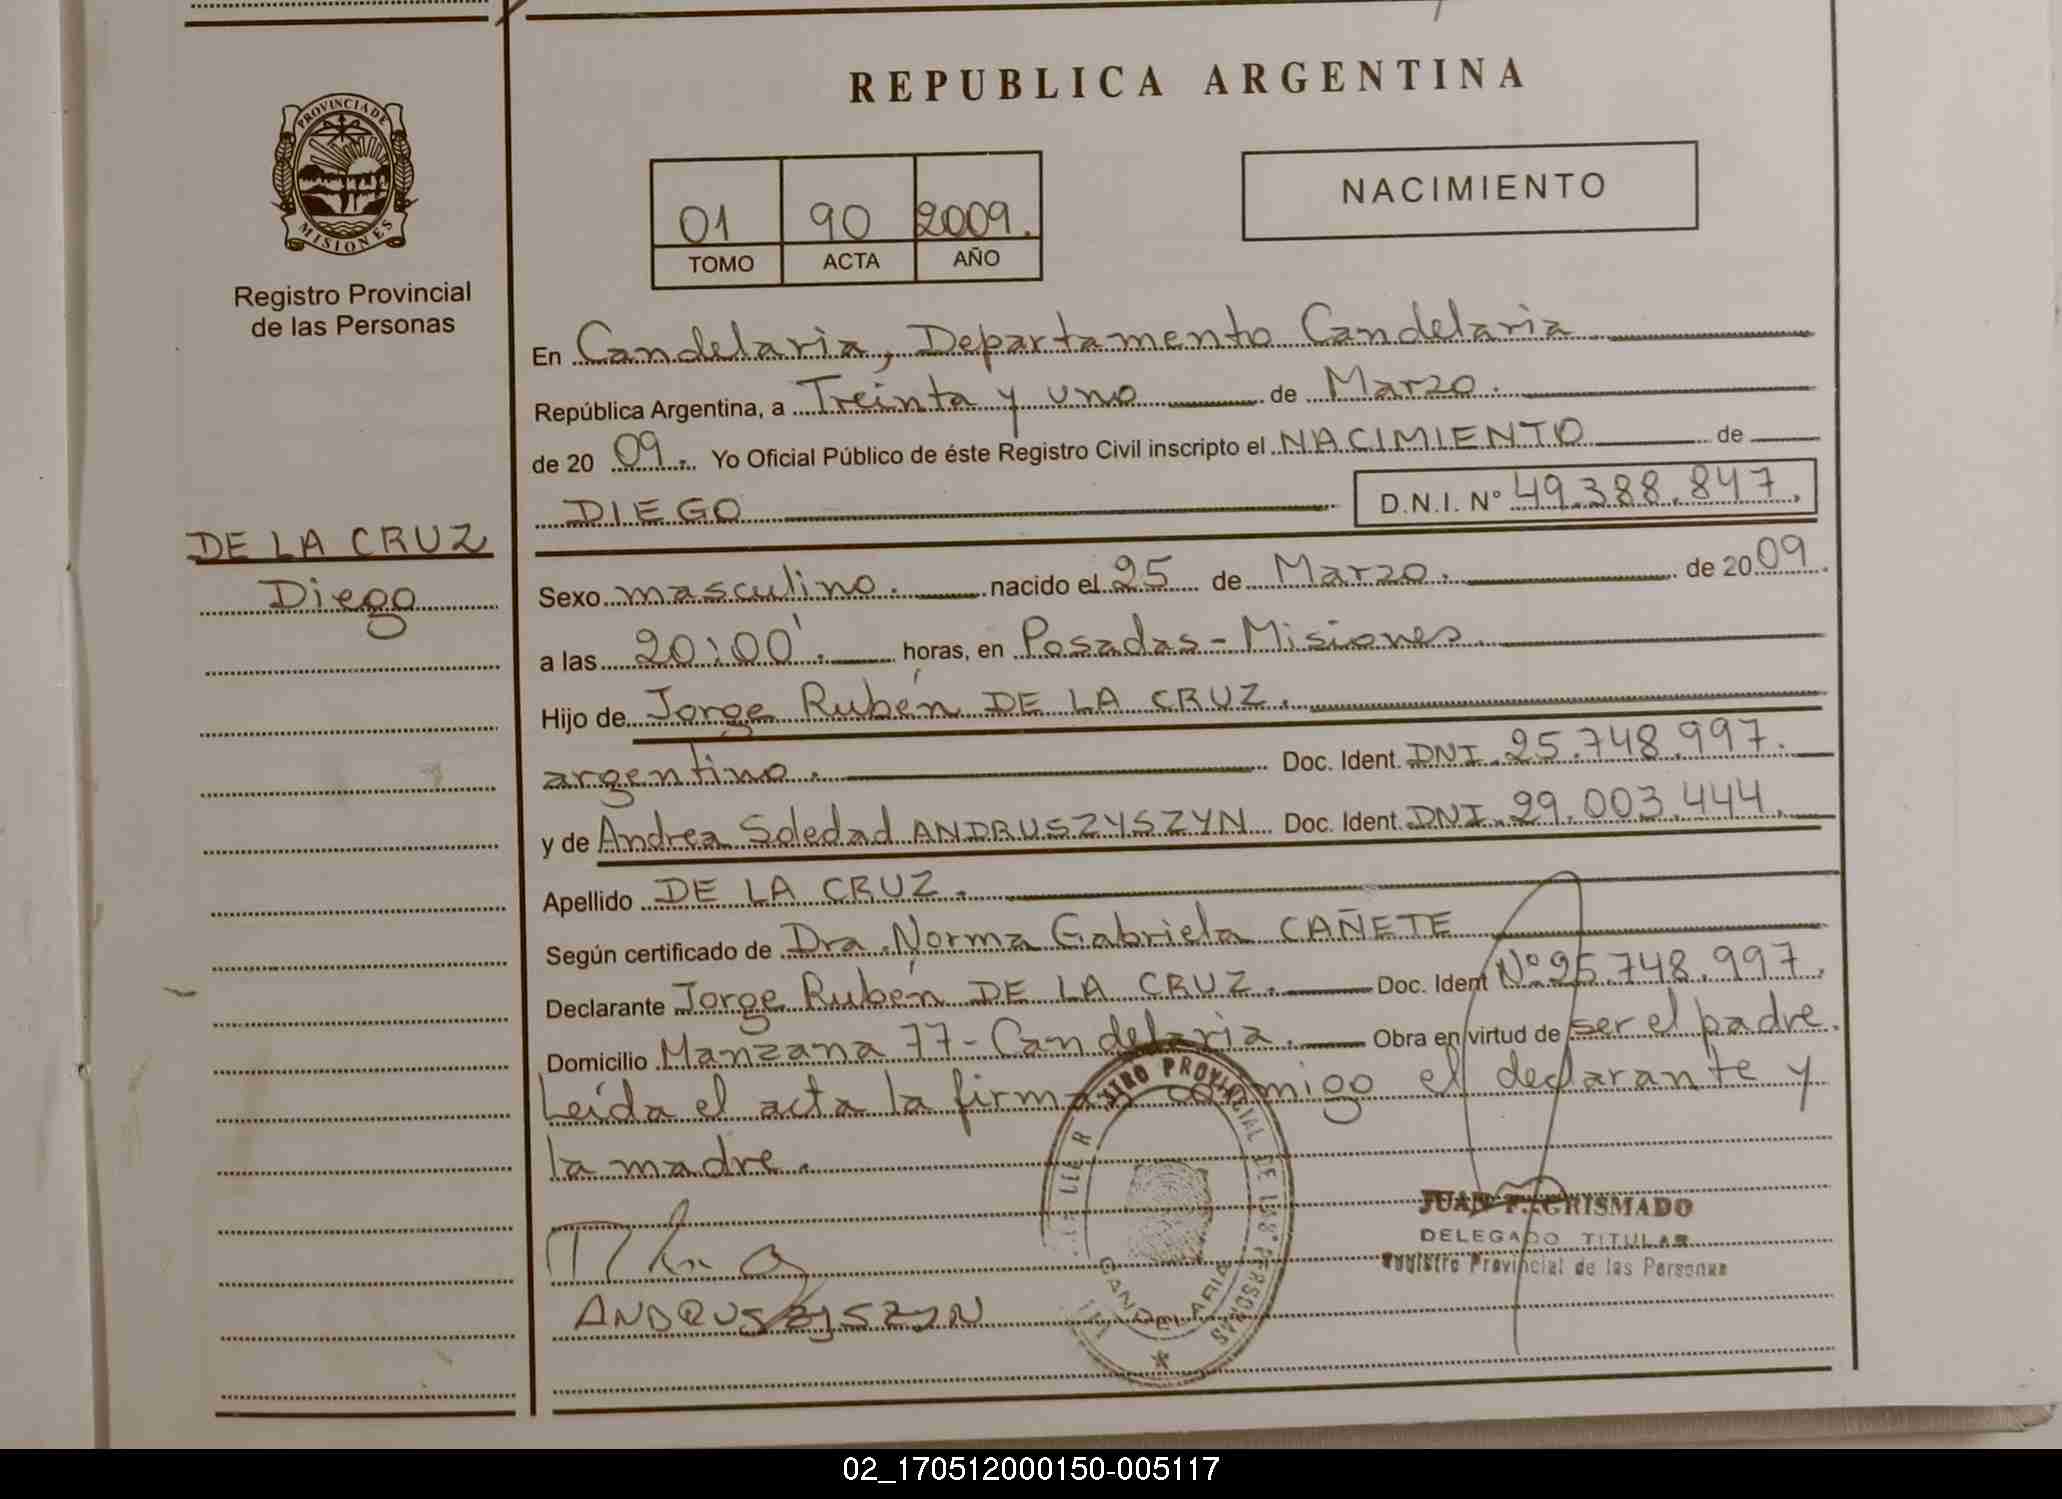 REPUBLICA ARGENTINA
PROVINCIA DE
MISIONES
Registro Provincial
de las Personas
01 90 2009.
TOMO ACTA AÑO
NACIMIENTO
En Candelaria, Departamento Candelaria
República Argentina, a Treinta y uno de Marzo.
de 20 09. Yo Oficial Público de éste Registro Civil inscripto el NACIMIENTO de
DIEGO D.N.I. N° 49.388.847.
DE LA CRUZ
Diego
Sexo masculino. nacido el 25 de Marzo. de 2009.
a las 20:00'. horas, en Posadas-Misiones.
Hijo de Jorge Rubén DE LA CRUZ.
argentino. Doc. Ident. DNI. 25.748.997.
y de Andrea Soledad ANDRUSZYSZYN Doc. Ident. DNI. 29.003.444.
Apellido DE LA CRUZ.
Según certificado de Dra. Norma Gabriela CAÑETE
Declarante Jorge Rubén DE LA CRUZ. Doc. Ident N° 25.748.997.
Domicilio Manzana 77-Candelaria. Obra en virtud de ser el padre.
Leída el acta la firman conmigo el declarante y
la madre.
REGISTRO PROVINCIAL DE LAS PERSONAS
CANDELARIA
JUAN F. CRISMADO
DELEGADO TITULAR
Registro Provincial de las Personas
ANDRUSZYSZYN
02_170512000150-005117